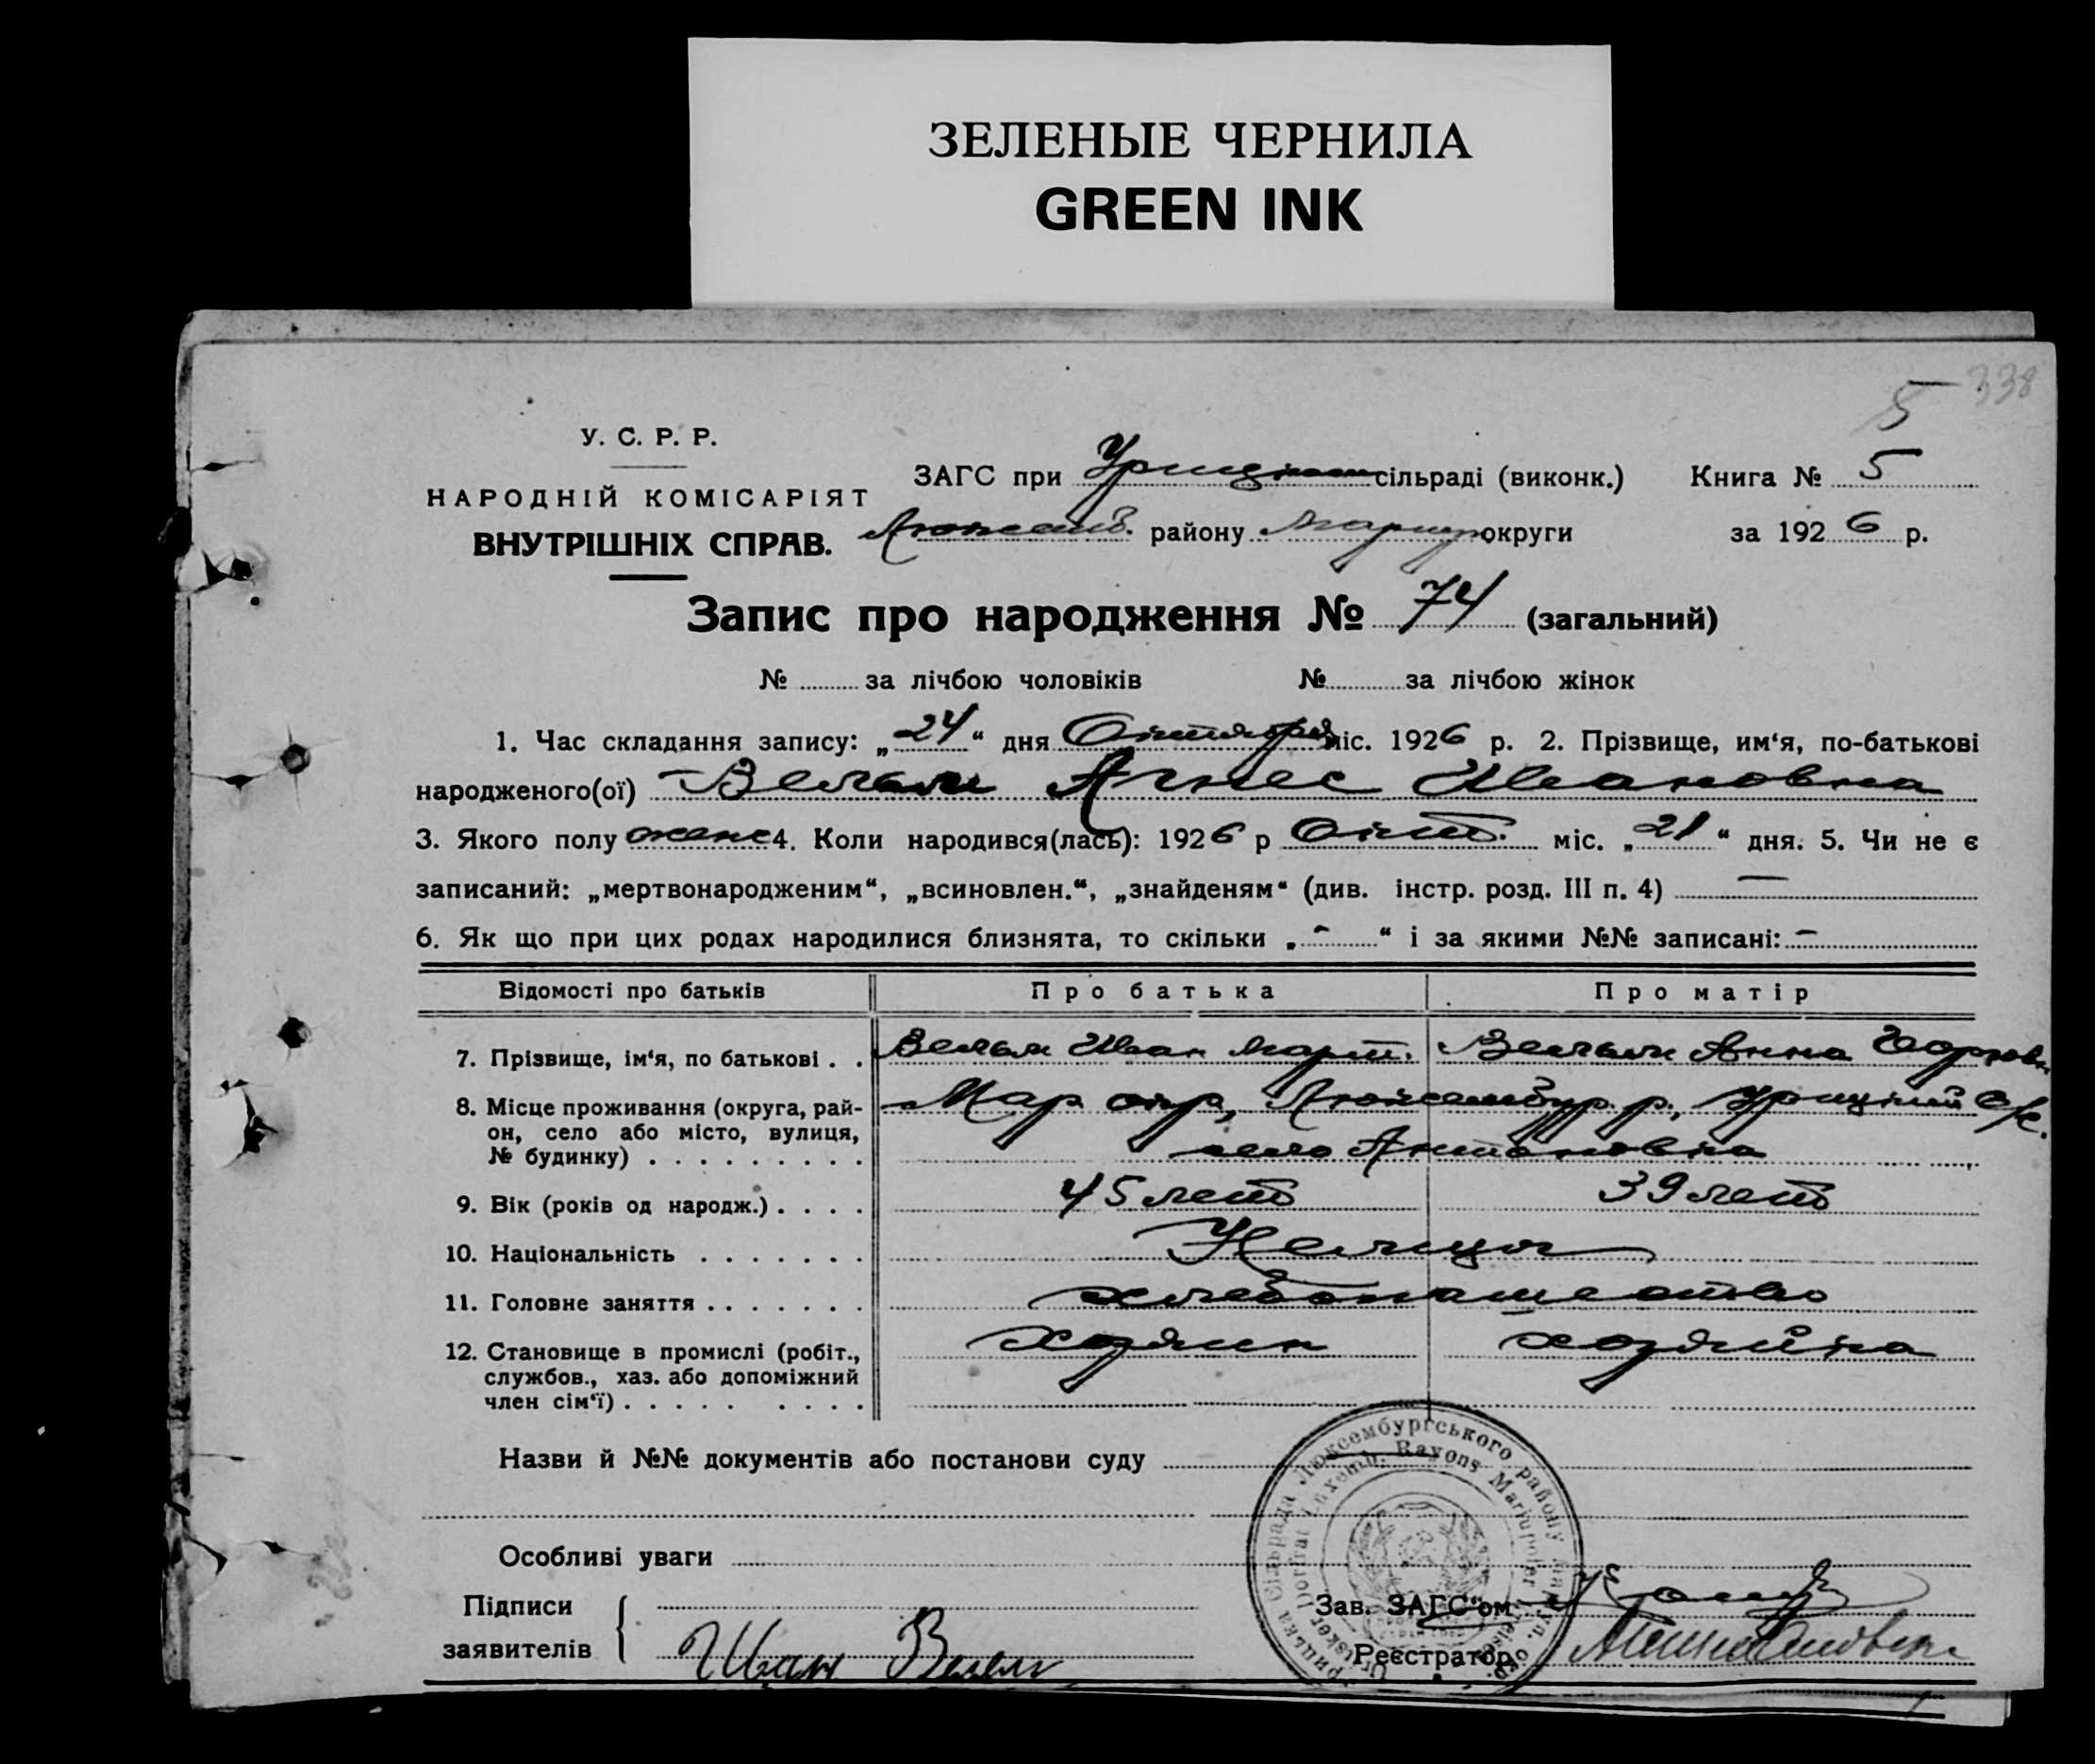 ЗЕЛЕНЫЕ ЧЕРНИЛА
GREEN INK
338
5
У. С. Р. Р.
НАРОДНІЙ КОМІСАРІЯТ
ВНУТРІШНІХ СПРАВ.
ЗАГС при Урицком сільраді (виконк.) Книга № 5
Люксемб. району Мариуп округи за 1926 р.
Запис про народження № 74 (загальний)
№ за лічбою чоловіків № за лічбою жінок
1. Час складання запису: „24“ дня Октября міс. 1926 р. 2. Прізвище, им‘я, по-батькові
народженого(ої) Вельм Агнес Ивановна
3. Якого полу женс 4. Коли народився(лась): 1926 р Окт. міс. „21“ дня. 5. Чи не є
записаний: „мертвонародженим“, „всиновлен.“, „знайденям“ (див. інстр. розд. III п. 4) —
6. Як що при цих родах народилися близнята, то скільки „-“ і за якими №№ записані: -
Відомості про батьків Про батька Про матір
7. Прізвище, ім‘я, по батькові . . Вельм Иван Март. Вельм Анна
8. Місце проживання (округа, рай-
он, село або місто, вулиця,
№ будинку) . . . . . . . . .
Мар окр, Люксембур. р., Урицкий с/с.
село Антоновка
9. Вік (років од народж.) . . . . 45 лет 39 лет
10. Національність . . . . . . . Немцы
11. Головне заняття . . . . . . . хлебопашество
12. Становище в промислі (робіт.,
службов., хаз. або допоміжний
член сім‘ї) . . . . . . . . .
хозяин хозяйка
Назви й №№ документів або постанови суду
Особливі уваги
Підписи
заявителів
Иван Вельм
Зав. ЗАГС“ом
Реєстратор
Урицька Сільрада Люксембургського району Маріуп. окр.
Uritzker Dorfrat Luxemb. Rayons Mariupoler Kreises